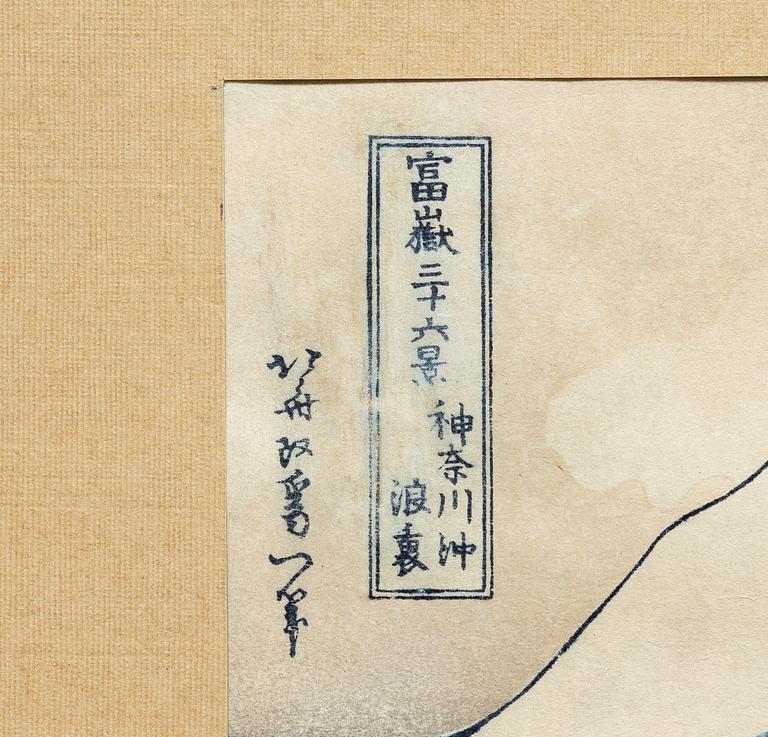 富嶽三十六景
神奈川沖
浪裏
北斎改爲一筆